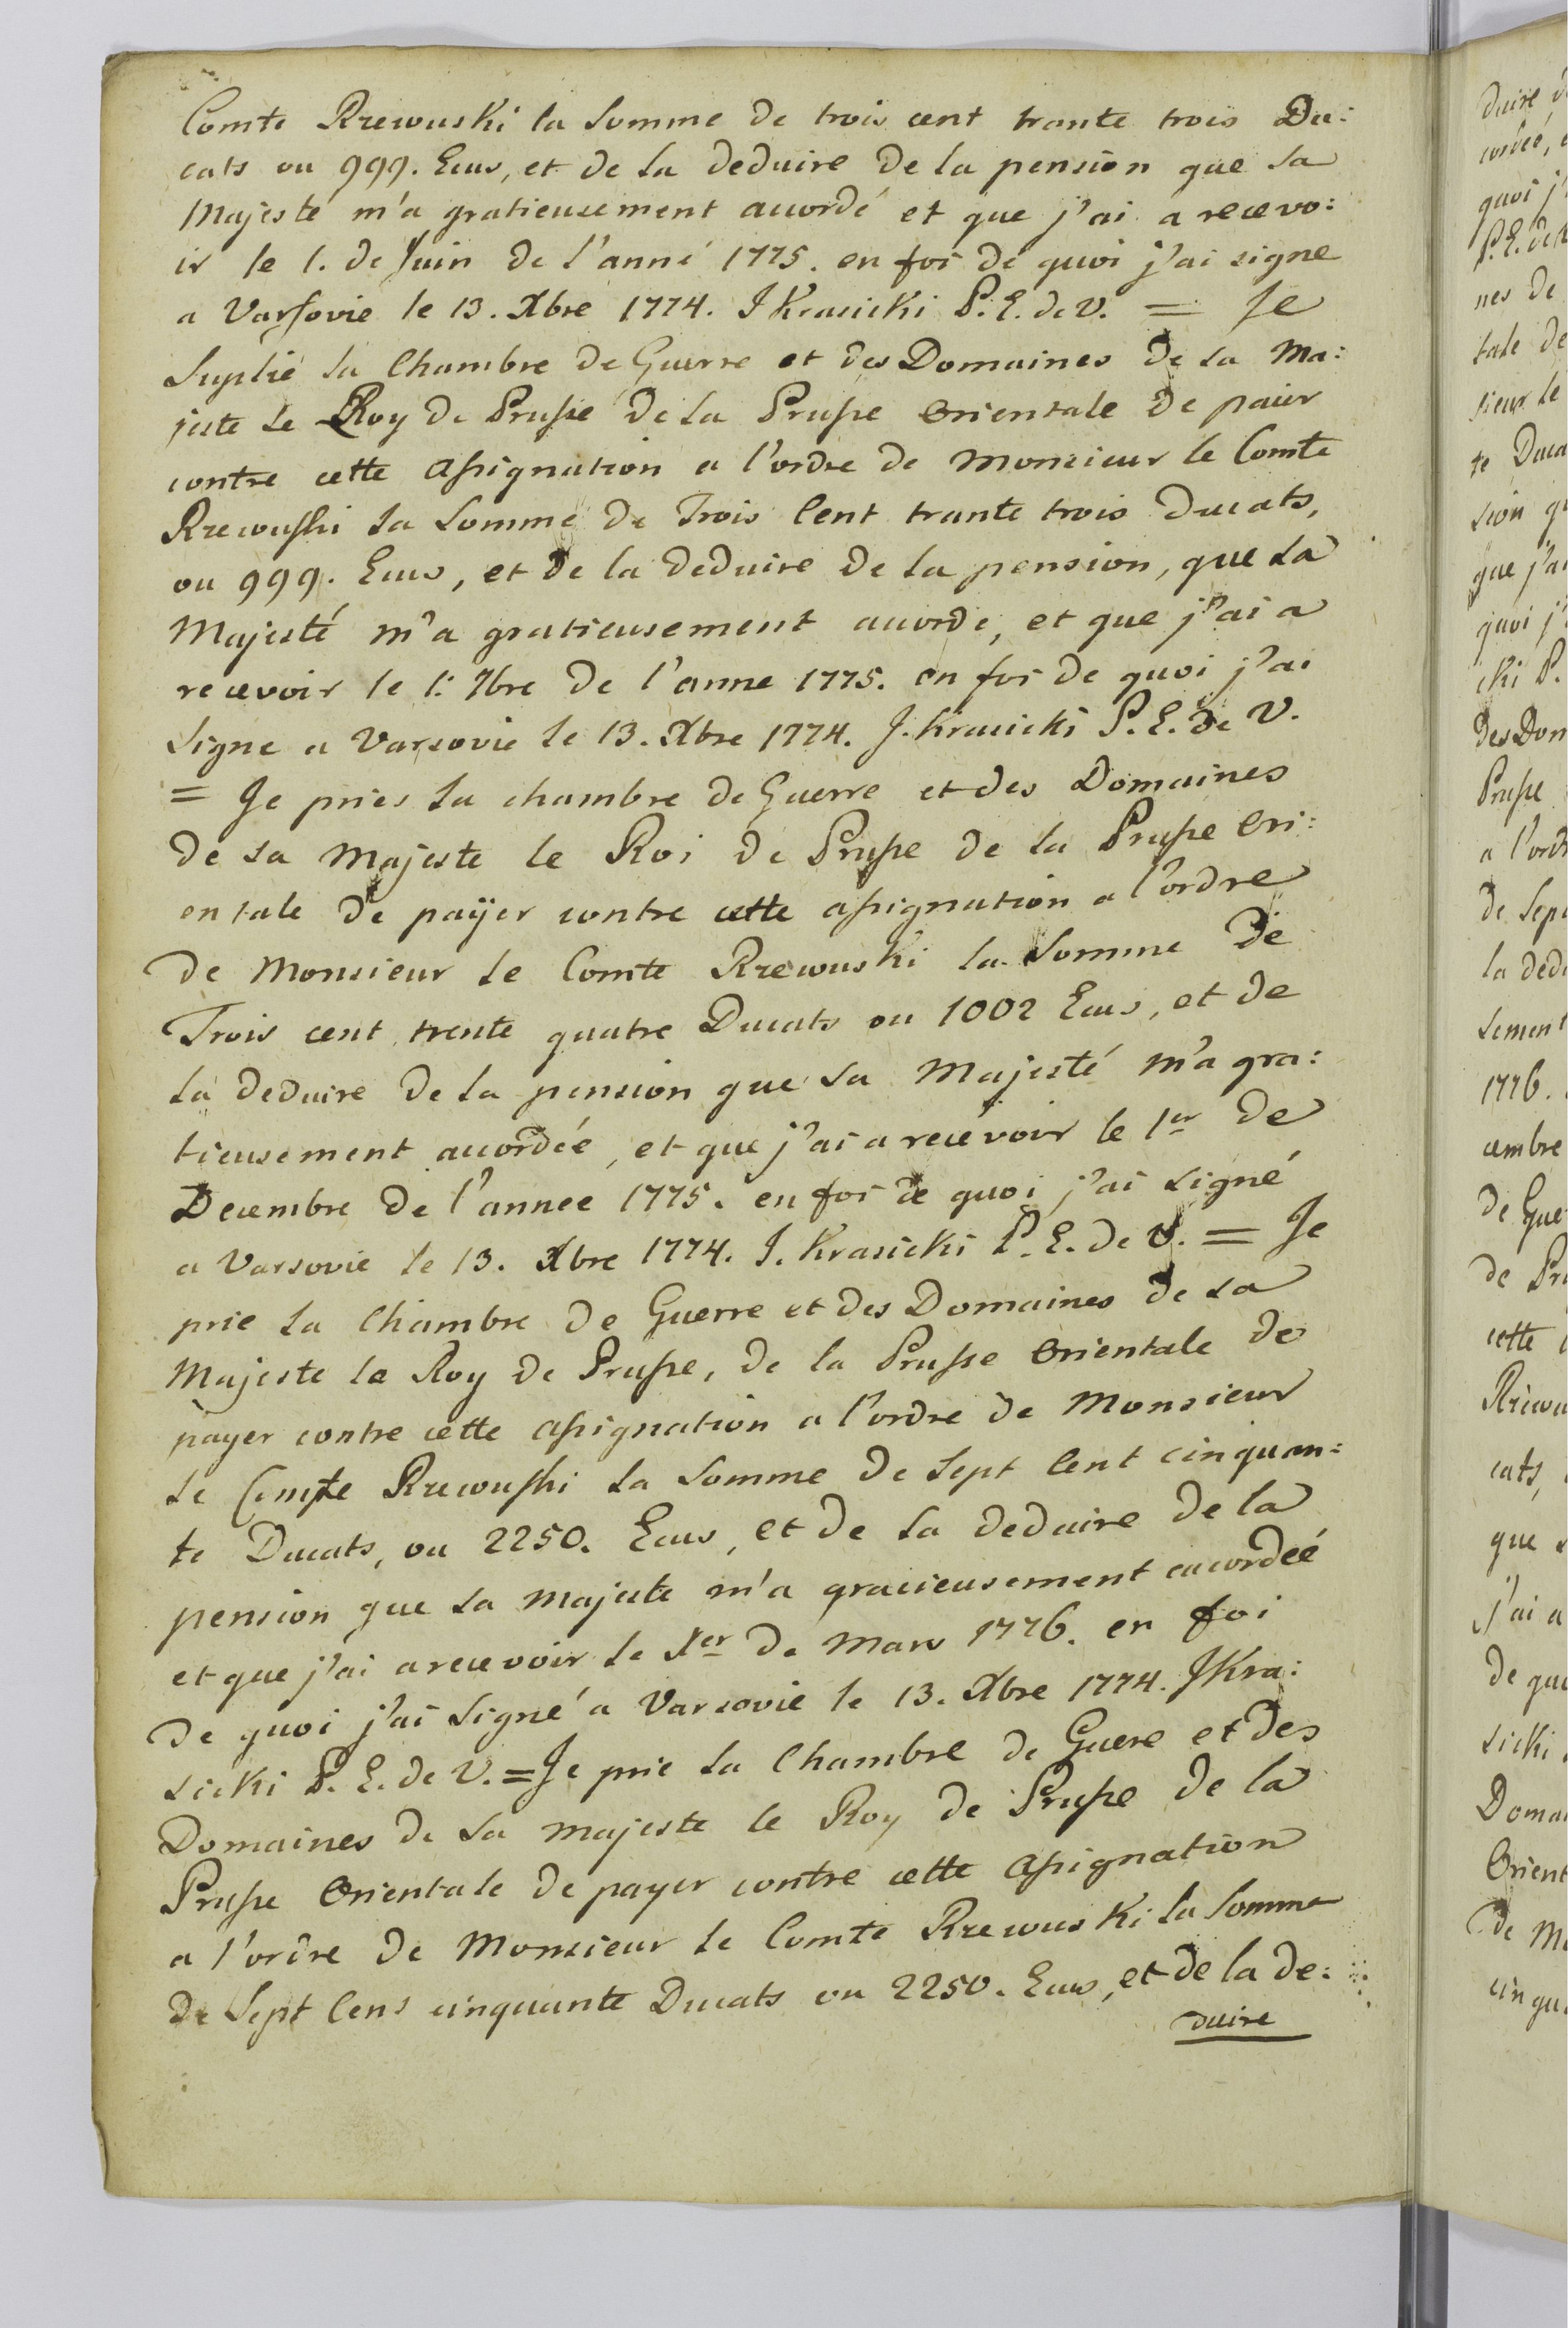 Comte Rzewuski la Somme de trois cent trante trois Du:
cats ou 999. Ecus, et de la deduire de la pension que Sa
Majesté m'a gratieusement accordé et que j'ai a recevo:
ir le 1. de Juin de l'anné 1775. en foi de quoi j'ai signe
a Varsovie le 13. Xbre 1774. J Krasicki P. E. de V. = Je
Suplié la Chambre de Guerre et des Domaines de Sa Ma:
jeste le Roy de Prusse de la Prusse Orientale de paier
contre cette assignation a l'ordre de Monsieur le Comte
Rzewuski la Somme de Trois Cent trante trois Ducats,
ou 999. Ecus, et de la deduire de la pension, que Sa
Majesté m'a gratieusement accorde, et que j'ai a
recevoir le 1: 7bre de l'anne 1775. en foi de quoi j'ai
Signe a Varsovie le 13. Xbre 1774. J. Krasicki P. E. de V.
= Je pries la chambre de Guerre et des Domaines
de Sa Majeste le Roi de Prusse de la Prusse Ori:
entale de paÿer contre cette assignation a l'ordre
de Monsieur le Comte Rzewuski la Somme de
Trois cent trente quatre Ducats ou 1002 Ecus, et de
la deduire de la pension que Sa Majesté m'a gra:
tieusement accordée, et que j'ai a recevoir le 1er de
Decembre de l'annee 1775. en foi de quoi j'ai Signé
a Varsovie le 13. Xbre 1774. J. Krasicki P. E. de V. = Je
prie la Chambre de Guerre et des Domaines de Sa
Majeste le Roy de Prusse, de la Prusse Orientale de
payer contre cette assignation a l'ordre de Monsieur
le Comte Rzewuski la Somme de Sept Cent cinquan:
te Ducats, ou 2250. Ecus, et de la deduire de la
pension que Sa Majeste m'a gracieusement accordeé
et que j'ai a recevoir le 1er de Mars 1776. en foi
de quoi j'ai Signé a Varsovie le 13. Xbre 1774. J Kra:
sicki P. E. de V. = Je prie la Chambre de Guere et des
Domaines de Sa Majeste le Roy de Prusse de la
Prusse Orientale de payer contre cette assignation
a l'ordre de Monsieur le Comte Rzewuski la Somme
de Sept Cens cinquante Ducats ou 2250. Ecus, et de la de:
duire